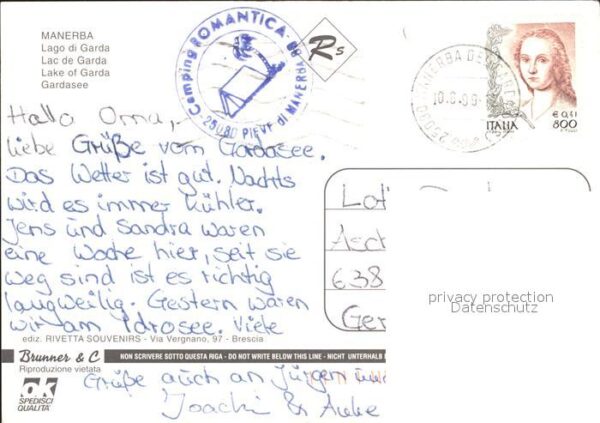 MANERBA
Lago di Garda
Lac de Garda
Lake of Garda
Gardasee
Camping ROMANTICA
25080 PIEVE di MANERBA BS
Rs
MANERBA DEL
10.8.99
25080
ITALIA
€ 0,41
800
Hallo Oma,
liebe Grüße vom Gardasee.
Das Wetter ist gut. Nachts
wird es immer kühler.
Jens und Sandra waren
eine Woche hier, seit sie
weg sind ist es richtig
langweilig. Gestern waren
wir am Idrosee. Viele
Grüße auch an Jürgen und
Joachi &
Lot
Asch
638
Ger
privacy protection
Datenschutz
ediz. RIVETTA SOUVENIRS - Via Vergnano, 97 - Brescia
Brunner & C
Riproduzione vietata
NON SCRIVERE SOTTO QUESTA RIGA - DO NOT WRITE BELOW THIS LINE - NICHT UNTERHALB
OK
SPEDISCI
QUALITA'